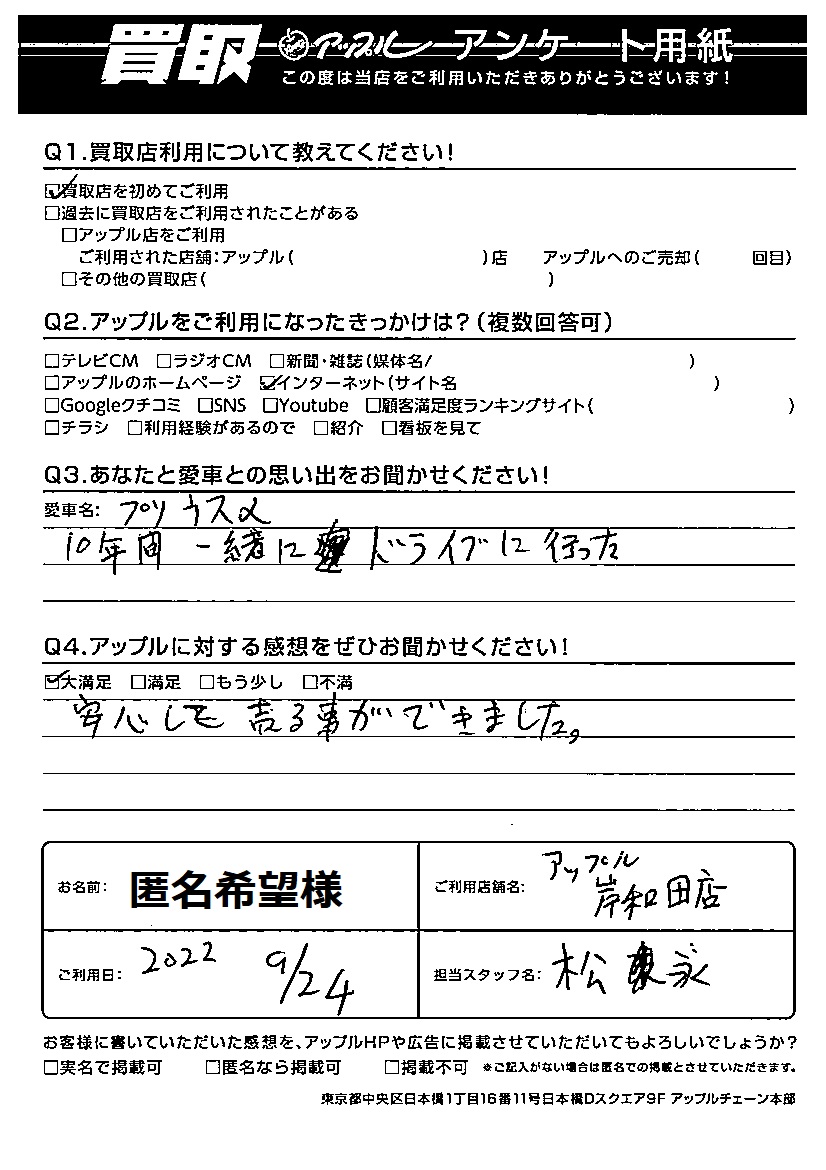 買取 アップル アンケート用紙
この度は当店をご利用いただきありがとうございます!
Q1.買取店利用について教えてください!
☑買取店を初めてご利用
□過去に買取店をご利用されたことがある
□アップル店をご利用
ご利用された店舗:アップル( )店 アップルへのご売却( 回目)
□その他の買取店( )
Q2.アップルをご利用になったきっかけは?(複数回答可)
□テレビCM □ラジオCM □新聞・雑誌(媒体名/ )
□アップルのホームページ ☑インターネット(サイト名 )
□Googleクチコミ □SNS □Youtube □顧客満足度ランキングサイト( )
□チラシ □利用経験があるので □紹介 □看板を見て
Q3.あなたと愛車との思い出をお聞かせください!
愛車名: プリウスα
10年間 一緒に ドライブに行った
Q4.アップルに対する感想をぜひお聞かせください!
☑大満足 □満足 □もう少し □不満
安心して売る事ができました。
お名前: 匿名希望様
ご利用店舗名: アップル
岸和田店
ご利用日: 2022 9/24
担当スタッフ名: 松 永
お客様に書いていただいた感想を、アップルHPや広告に掲載させていただいてもよろしいでしょうか?
□実名で掲載可 □匿名なら掲載可 □掲載不可 ※ご記入がない場合は匿名での掲載とさせていただきます。
東京都中央区日本橋1丁目16番11号日本橋Dスクエア9F アップルチェーン本部